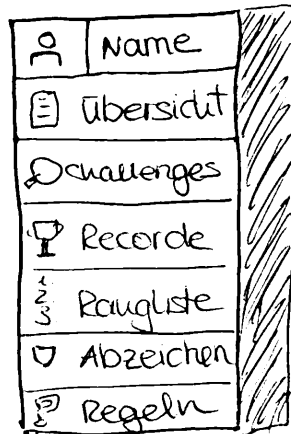 Name
Übersicht
Challenges
Recorde
1
2
3
Rangliste
Abzeichen
Regeln